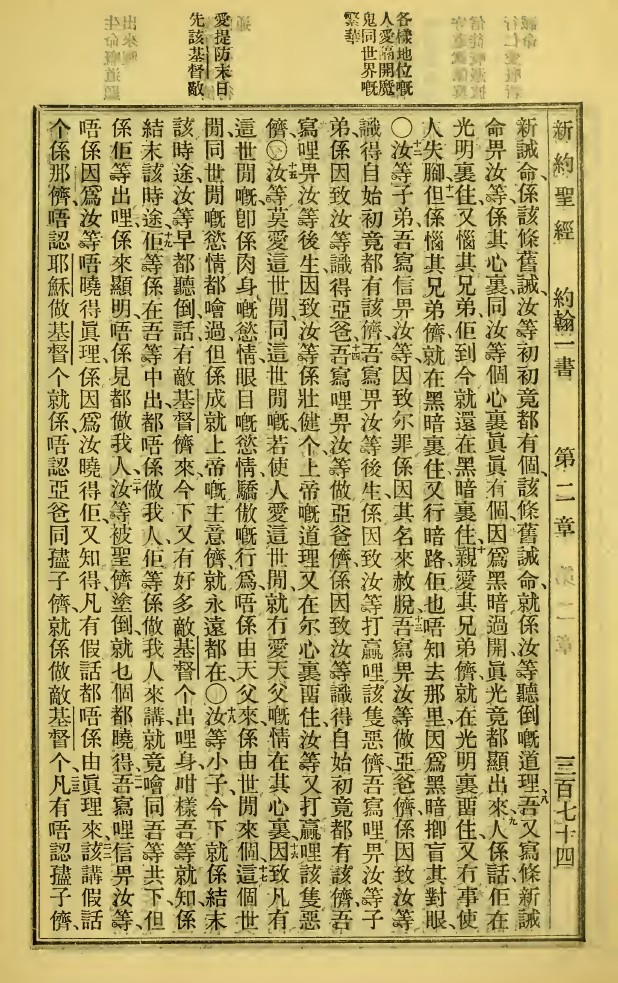 新約聖經 約翰一書 第二章 三百七十四
各樣地位嘅
人愛隔開魔
鬼同世界嘅
繁華
愛提防末日
先該基督敵
新誡命、係該條舊誡、汝等初初竟都有個、該條舊誡命、就係汝等聽倒嘅道理、八吾又寫條新誡
命畀汝等、係其心裏同汝等個心裏眞眞有個、因爲黑暗過開、眞光竟都顯出來、九人係話佢在
光明裏住、又惱其兄弟、佢到今就還在黑暗裏住、十親愛其兄弟儕、就在光明裏畱住、又冇事使
人失腳、十一但係惱其兄弟儕、就在黑暗裏住、又行暗路、佢也唔知去那里、因爲黑暗揤盲其對眼、
〇十二汝等子弟、吾寫信畀汝等、因致尔罪係因其名來赦脫、十三吾寫畀汝等做亞爸儕、係因致汝等
識得自始初竟都有該儕、吾寫畀汝等後生、係因致汝等打贏哩該隻惡儕、吾寫哩畀汝等子
弟、係因致汝等識得亞爸、十四吾寫哩畀汝等做亞爸儕、係因致汝等識得自始初竟都有該儕、吾
寫哩畀汝等後生、因致汝等係壯健个、上帝嘅道理又在尔心裏畱住、汝等又打贏哩該隻惡
儕、〇十五汝等莫愛這世間、同這世間嘅、若使人愛這世間、就冇愛天父嘅情在其心裏、十六因致凡有
這世間嘅、卽係肉身嘅慾情、眼目嘅慾情、驕傲嘅行爲、唔係由天父來、係由世間來個、十七這個世
間同世間嘅慾情都噲過、但係成就上帝嘅主意儕、就永遠都在、〇十八汝等小子、今下就係結末
該時途、汝等早都聽倒話有敵基督儕來、今下又有好多敵基督个出哩身、咁樣吾等就知係
結末該時途、十九佢等係在吾等中出、都唔係做我人、佢等係做我人來講、就竟噲同吾等共下、但
係佢等出哩、係來顯明唔係見都做我人、二十汝等被聖儕塗倒、就乜個都曉得、二一吾寫哩信畀汝等、
唔係因爲汝等唔曉得眞理、係因爲汝曉得佢、又知得凡有假話都唔係由眞理來、二二該講假話
个係那儕、唔認耶穌做基督个、就係唔認亞爸同孻子儕、就係做敵基督个、二三凡有唔認孻子儕、